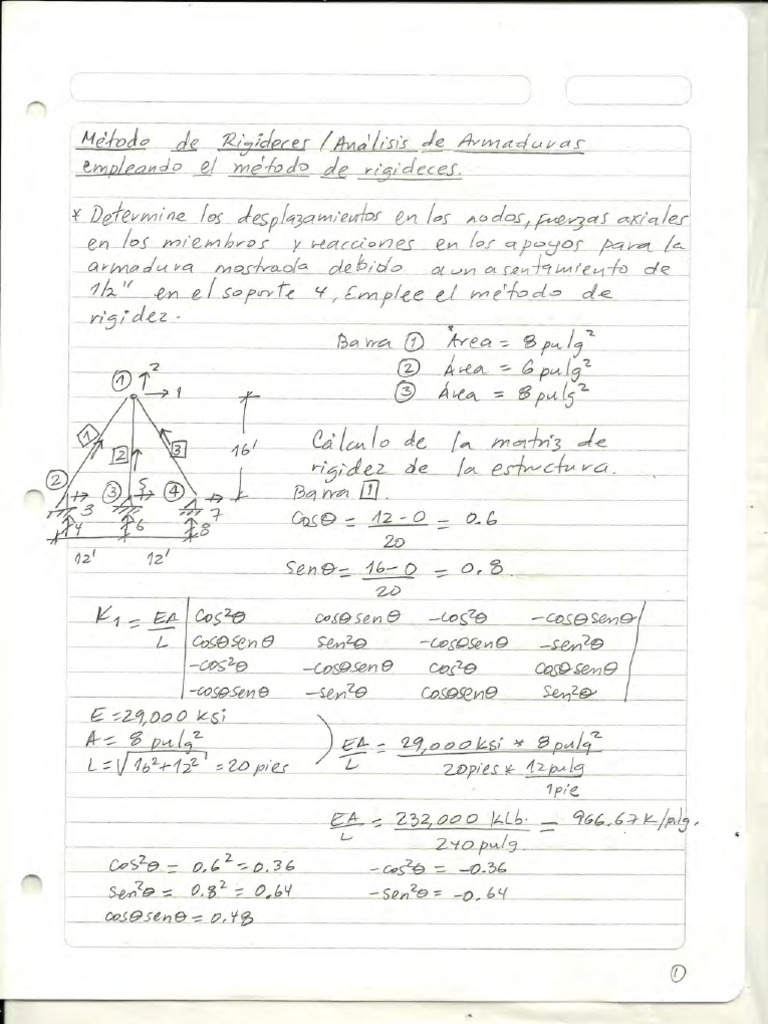 Método de Rigideces / Análisis de Armaduras
empleando el método de rigideces.
* Determine los desplazamientos en los nodos, fuerzas axiales
en los miembros y reacciones en los apoyos para la
armadura mostrada debido a un asentamiento de
1/2" en el soporte 4, Emplee el método de
rigidez.
Barra ① Área = 8 pulg²
② Área = 6 pulg²
③ Área = 8 pulg²
① 2
1
1 2 3
16'
② ③ 5 ④
3 7
4 6 8
12' 12'
Cálculo de la matriz de
rigidez de la estructura.
Barra 1.
Cosθ = 12-0 = 0.6
20
Senθ = 16-0 = 0.8
20
K1 = EA Cos²θ cosθsenθ -cos²θ -cosθsenθ
L cosθsenθ sen²θ -cosθsenθ -sen²θ
-cos²θ -cosθsenθ cos²θ cosθsenθ
-cosθsenθ -sen²θ cosθsenθ Sen²θ
E = 29,000 ksi
A = 8 pulg²
L = √16²+12² = 20 pies
EA = 29,000 ksi * 8 pulg²
L 20pies * 12pulg
1pie
EA = 232,000 Klb. = 966.67 K/pulg.
L 240 pulg.
cos²θ = 0.6² = 0.36 -cos²θ = -0.36
sen²θ = 0.8² = 0.64 -sen²θ = -0.64
cosθsenθ = 0.48
①